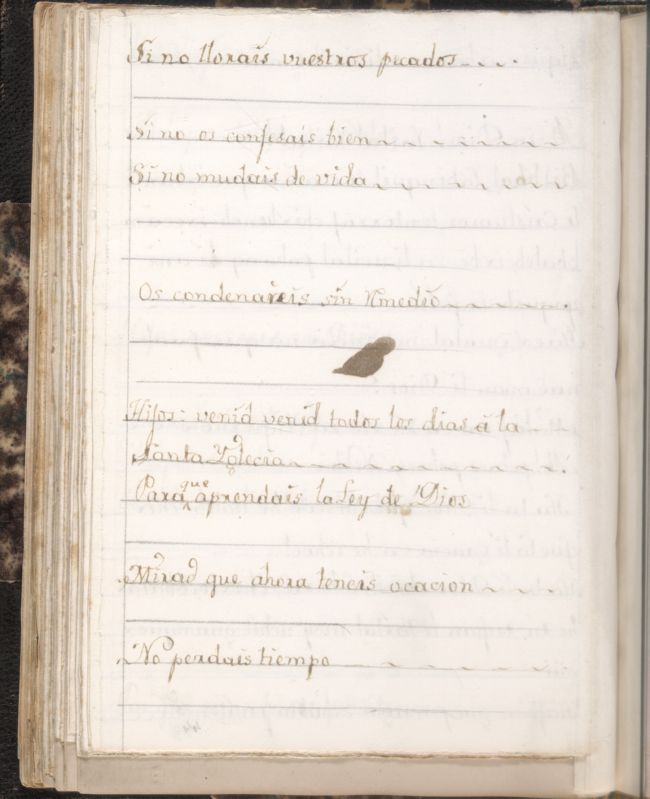 Si no llorais vuestros pecados
Si no os confesais bien
Si no mudais de vida
Os condenareis sin Rmedio
Hijos: venid venid todos los dias â la
Santa Yglecia
Para que aprendais la Ley de Dios
Mirad que ahora teneis ocacion
No perdais tiempo